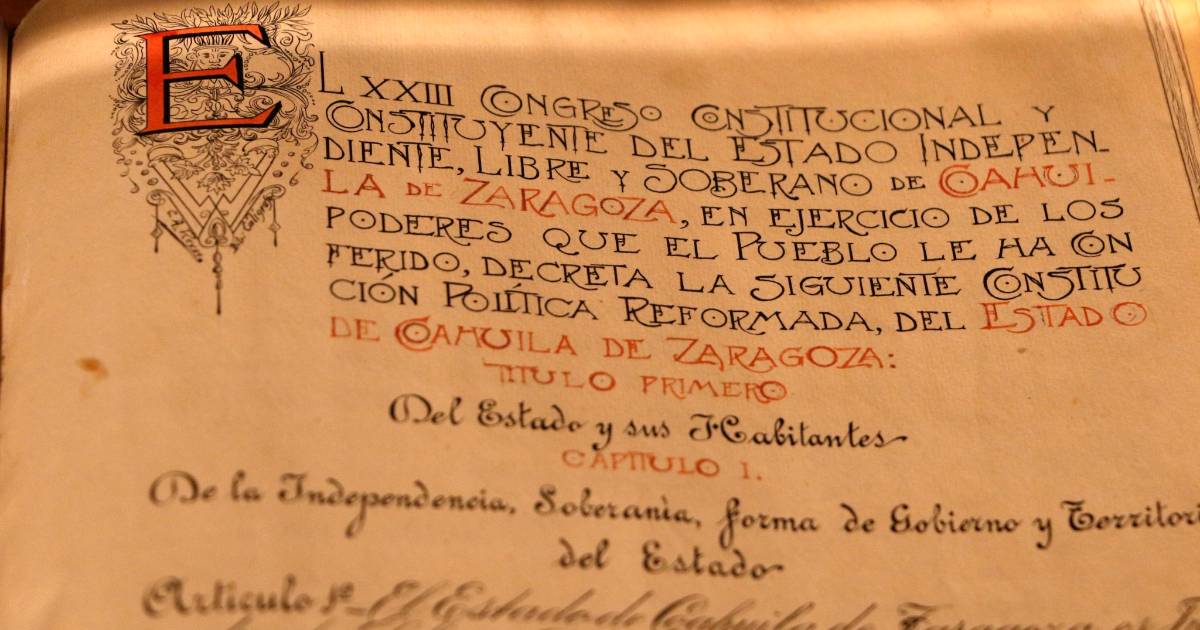 EL XXIII CONGRESO CONSTITUCIONAL Y
CONSTITUYENTE DEL ESTADO INDEPEN-
DIENTE, LIBRE Y SOBERANO DE COAHUI-
LA DE ZARAGOZA, EN EJERCICIO DE LOS
PODERES QUE EL PUEBLO LE HA CON
FERIDO, DECRETA LA SIGUIENTE CONSTITU
CIÓN POLÍTICA REFORMADA, DEL ESTADO
DE COAHUILA DE ZARAGOZA:
TITULO PRIMERO
Del Estado y sus Habitantes
CAPITULO I.
De la Independencia, Soberanìa, forma de Gobierno y Territori
del Estado
Articulo 1º_El Estado de Coahuila de Zaragoza es